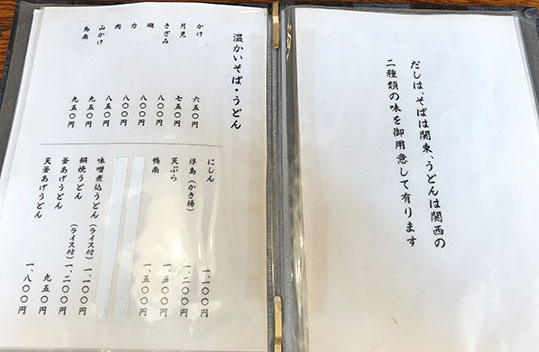 だしは、そばは関東、うどんは関西の
二種類の味を御用意して有ります
温かいそば・うどん
かけ 六五〇円
月見 七五〇円
きざみ 八〇〇円
磯 八〇〇円
力 八〇〇円
肉 八五〇円
山かけ 九五〇円
鳥南 九五〇円
にしん 一、一〇〇円
浮島(かき揚) 一、二〇〇円
天ぷら 一、五〇〇円
鴨南 一、五〇〇円
味噌煮込うどん(ライス付) 一、一〇〇円
鍋焼うどん(ライス付) 一、二〇〇円
釜あげうどん 九五〇円
天釜あげうどん 一、八〇〇円